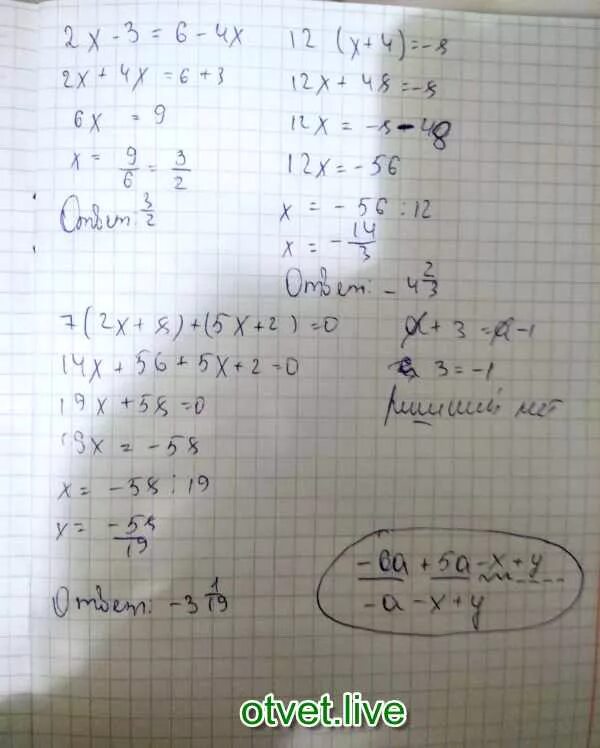 2x - 3 = 6 - 4x
2x + 4x = 6 + 3
6x = 9
x = 9/6 = 3/2
Ответ: 3/2
12 (x + 4) = -8
12x + 48 = -8
12x = -8 - 48
12x = -56
x = -56 : 12
x = -14/3
Ответ: -4 2/3
7(2x + 8) + (5x + 2) = 0
14x + 56 + 5x + 2 = 0
19x + 58 = 0
19x = -58
x = -58 : 19
x = -58/19
Ответ: -3 1/19
x + 3 = x - 1
3 = -1
Решений нет
-6a + 5a - x + y
-a - x + y
otvet.live